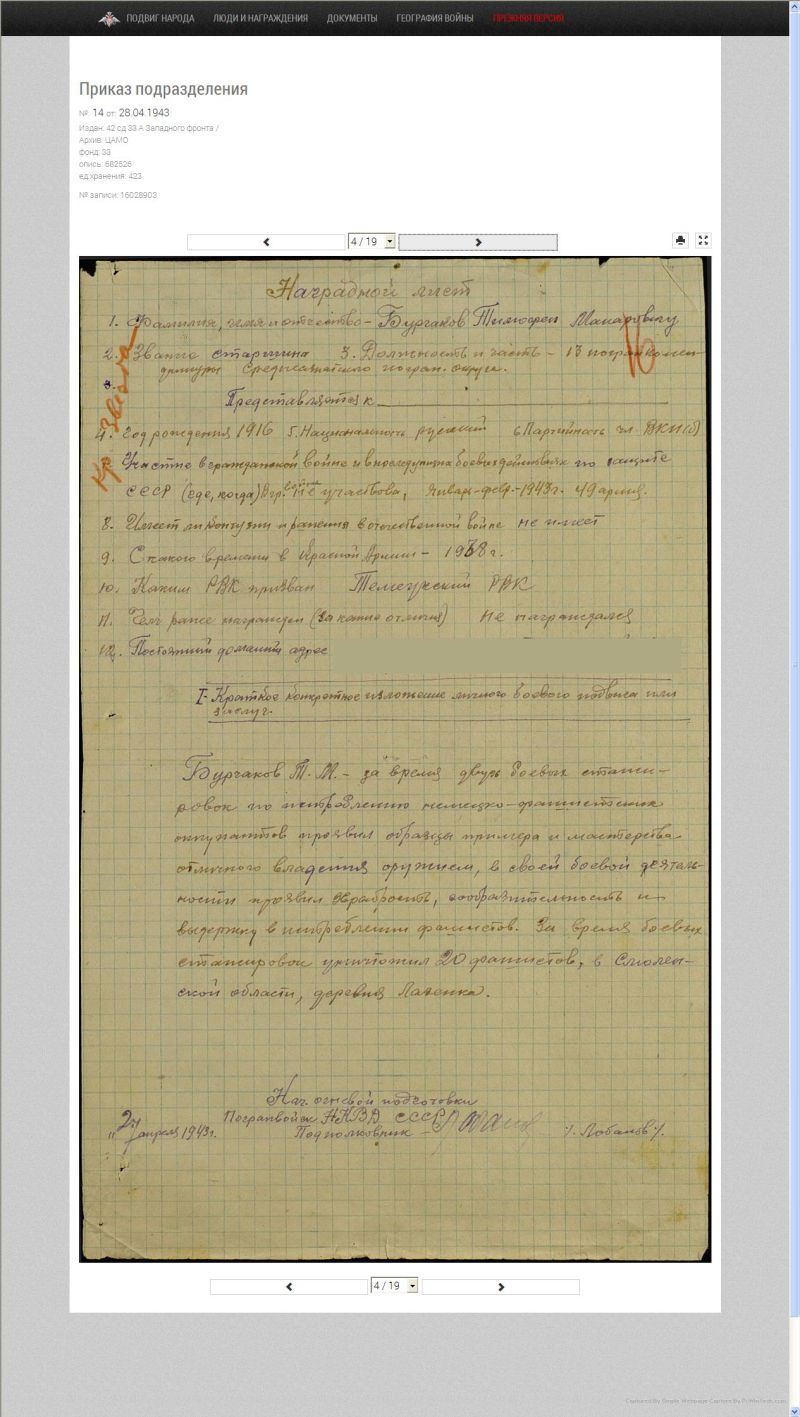 ПОДВИГ НАРОДА ЛЮДИ И НАГРАЖДЕНИЯ ДОКУМЕНТЫ ГЕОГРАФИЯ ВОЙНЫ ПРЕЖНЯЯ ВЕРСИЯ
Приказ подразделения
№: 14 от: 28.04.1943
Издан: 42 сд 33 А Западного фронта /
Архив: ЦАМО
фонд: 33
опись: 682526
ед.хранения: 423
№ записи: 16028903
4 / 19
Наградной лист
1. Фамилия, имя и отчество - Бурчаков Тимофей Макарович
2. Звание старшина 3. Должность и часть - 13 погранкомен-
датуры Среднеазиатского погран. округа.
3.
Кр. Звезда
Представляется к
4. Год рождения 1916 5. Национальность русский 6 Партийность чл. ВКП(б)
Участие в гражданской войне и в последующих боевых действиях по защите
СССР (где, когда) В гр. войне не участвовал, Январь-февр.-1943г. 49 армия.
8. Имеет ли контузии и ранения в отечественной войне не имеет
9. С какого времени в Красной Армии - 1938 г.
10. Каким РВК призван РВК
11. Чем ранее награжден (за какие отличия) Не награждался
12. Постоянный домашний адрес
I - Краткое конкретное изложение личного боевого подвига или
заслуг.
Бурчаков Т. М. - за время двух боевых стажи-
ровок по истреблению немецко-фашистских
оккупантов проявил образцы примера и мастерства
отличного владения оружием, в своей боевой деятель-
ности проявил храбрость, сообразительность и
выдержку в истреблении фашистов. За время боевых
стажировок уничтожил 20 фашистов, в Смолен-
ской области, деревня
Нач. огневой подготовки
Погранвойск НКВД СССР
"27 апреля 1943г. Подполковник - /. Лобанов /.
4 / 19